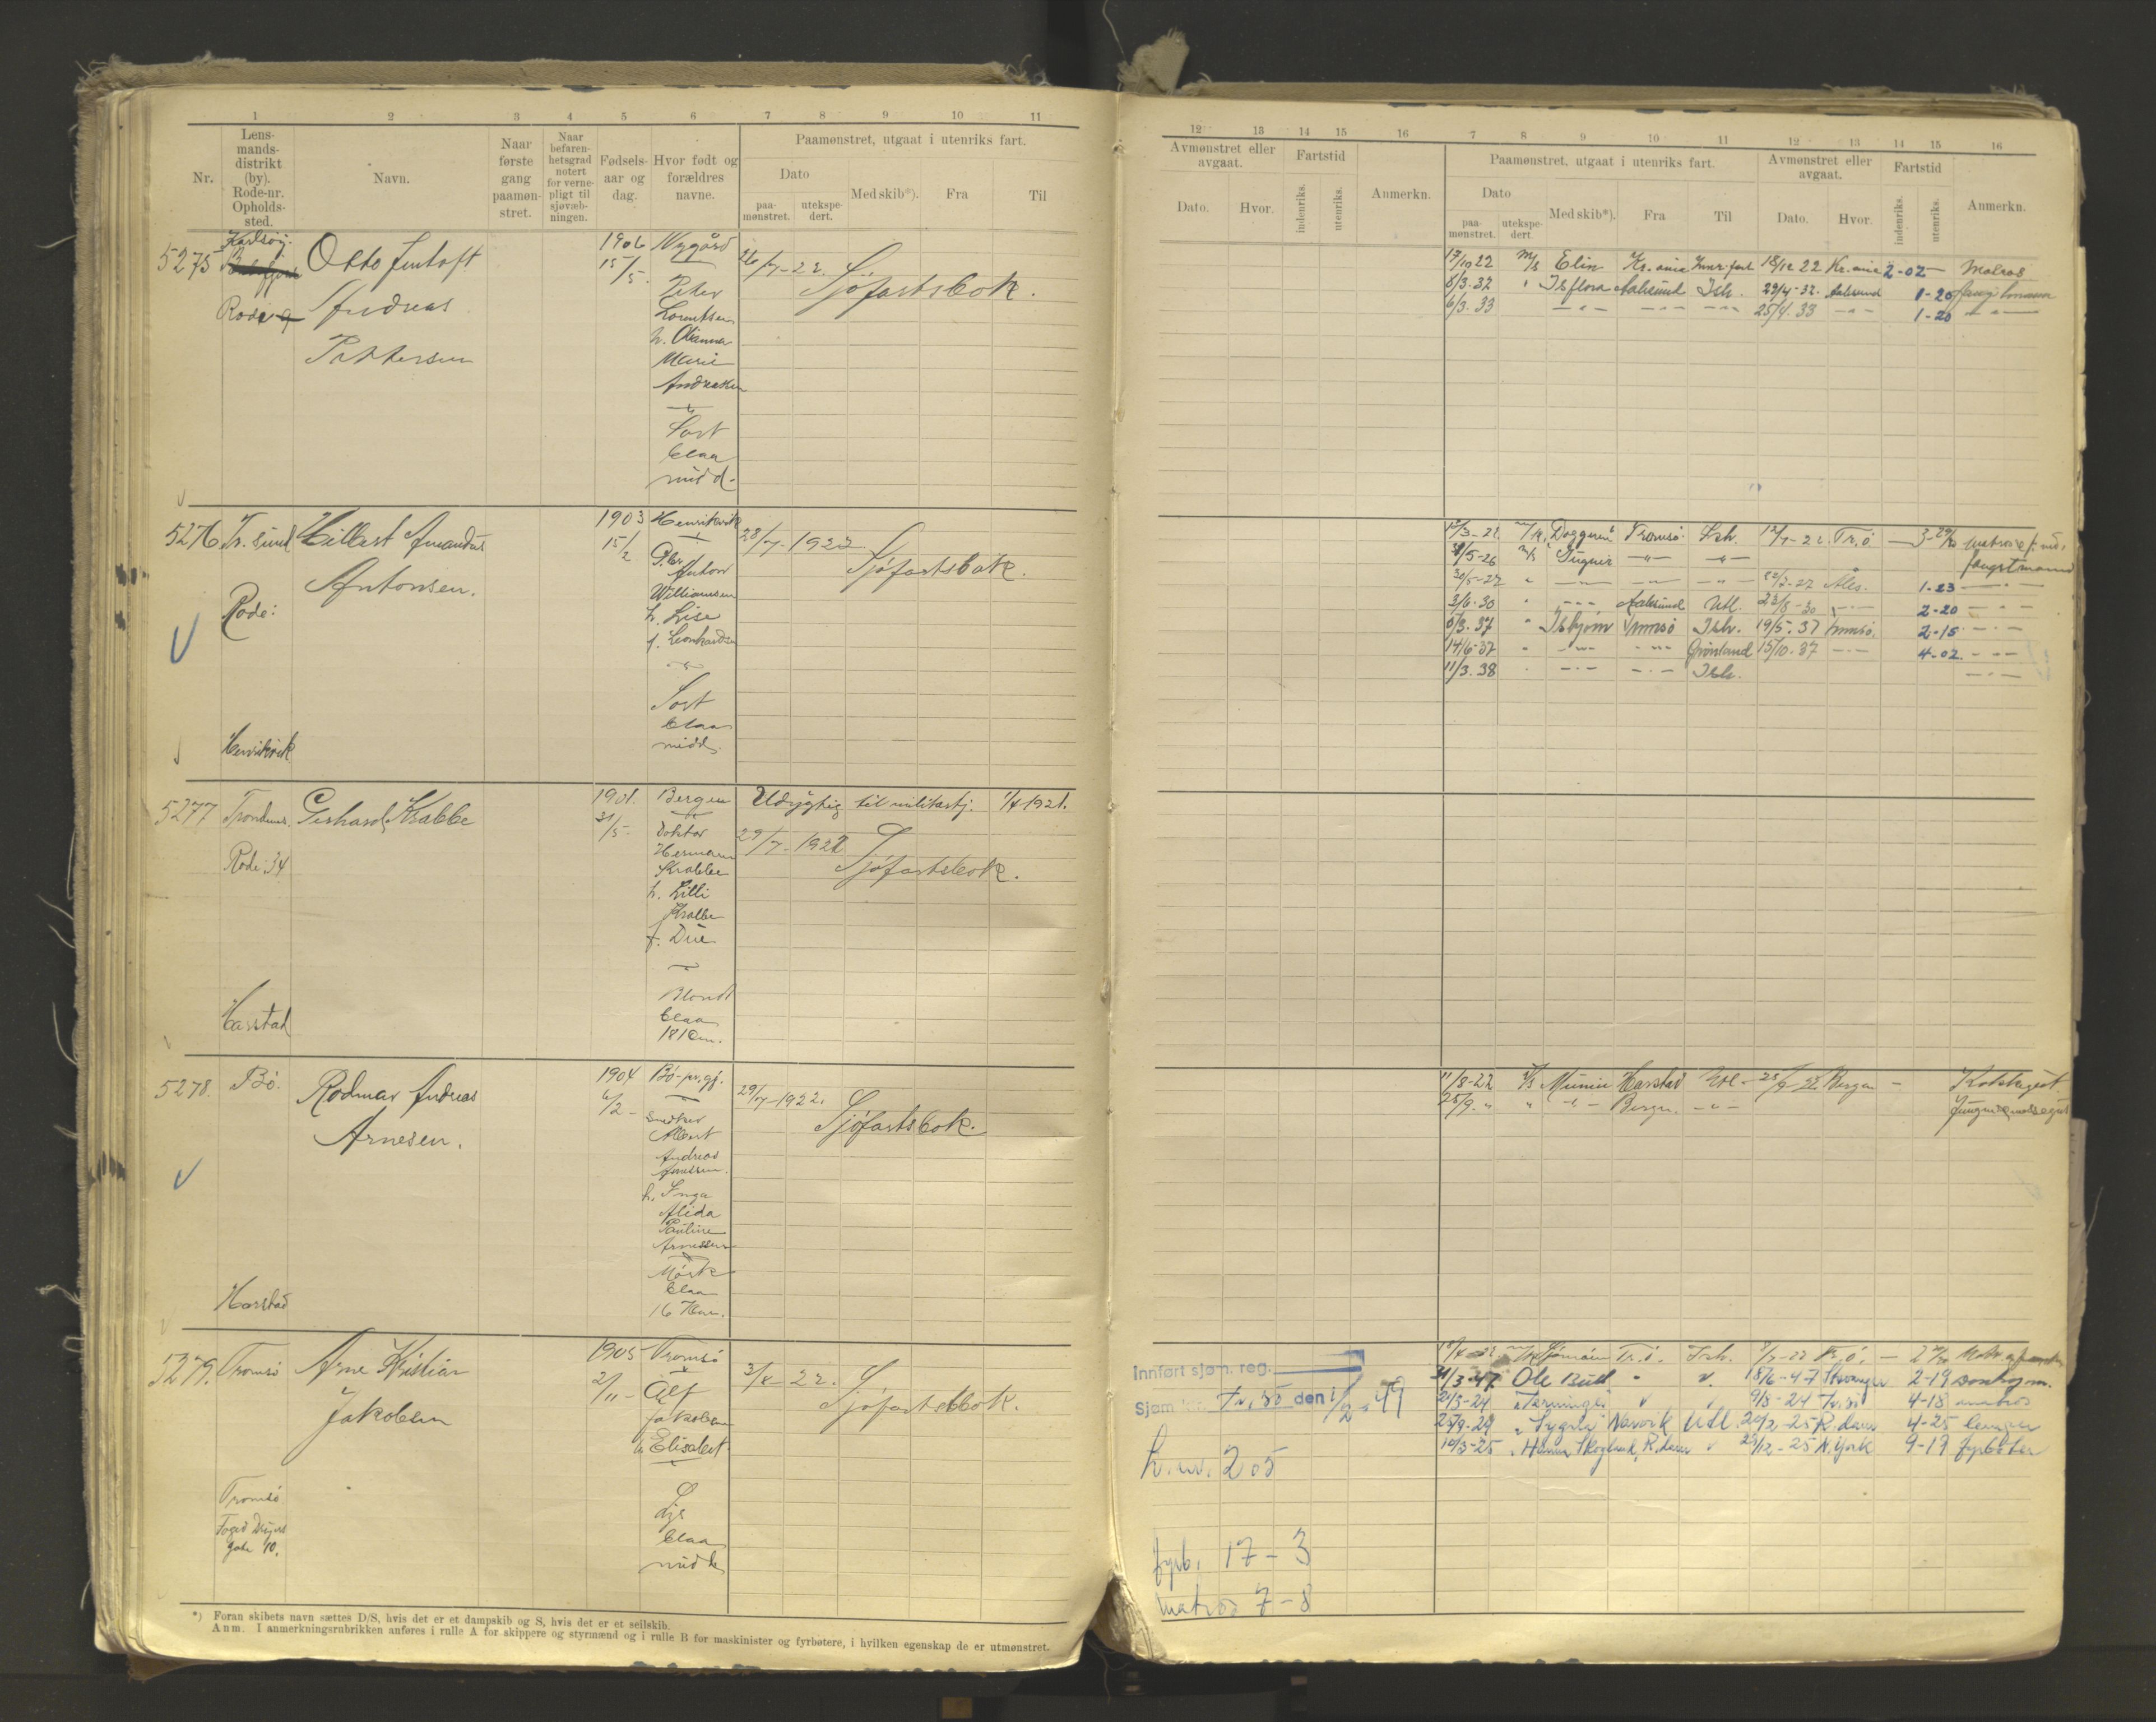 1 2 3 4 5 6 7 8 9 10 11
Nr.
Lens-
mands-
distrikt
(by).
Rode-nr.
Opholds-
sted.
Navn.
Naar
første
gang
paamøn-
stret.
Naar
befaren-
hetsgrad
notert
for verne-
pligt til
sjøvæb-
ningen.
Fødsels-
aar og
dag.
Hvor født og
forældres
navne.
Paamønstret, utgaat i utenriks fart.
Dato
paa-
mønstret.
utekspe-
dert.
Med skib*).
Fra
Til
5275
Karlsøy.
Rode
Otto Jentoft
Andreas
Pettersen
1906
15/5.
Nygård
Peter
Lorentsen
h. Hanna
Marie
Andreasen
Sort
blaa
midd.
26/7-22. Sjøfartsbok.
5276 Tr.sund
Rode:
Henrikvik
Hilbert Amandus
Antonsen.
1903
15/2
Henrikvik
Peder
Anton
Williamsen
h. Lise
f. Leonhardsen
Sort
blaa
midd.
28/7-1922 Sjøfartsbok.
5277 Trondenes.
Rode: 34
Harstad
Gerhard Krabbe
1901.
31/5-
Bergen
Doktor
Hermann
Krabbe
h. Lilli
Krabbe
f. Due
Blond
blaa
181 cm.
Udygtig til militærtj. 1/4 1921.
29/7-1922 Sjøfartsbok.
5278. Bø.
Harstad
Rodmar Andreas
Arnesen.
1904
6/2-
Bø-pr.gj.
Snedker
Albert
Andreas
Arnesen.
h. Inga
Alida
Pauline
Arnessen
Mørk
blaa
167 cm.
29/7-1922. Sjøfartsbok.
5279. Tromsø
Tromsø
Foged Dreyers
gate 10.
Arne Kristian
Jakobsen
1905
2/11-
Tromsø
Alf
Jakobsen
h. Elisabet
Lys
blaa
midd.
3/8-22. Sjøfartsbok.
*) Foran skibets navn sættes D/S, hvis det er et dampskib og S, hvis det er et seilskib.
Anm. I anmerkningsrubrikken anføres i rulle A for skippere og styrmænd og i rulle B for maskinister og fyrbøtere, i hvilken egenskap de er utmønstret.
12 13 14 15 16 7 8 9 10 11 12 13 14 15 16
Avmønstret eller
avgaat.
Dato.
Hvor.
Fartstid
indenriks.
utenriks.
Anmerkn.
Paamønstret, utgaat i utenriks fart.
Dato
paa-
mønstret.
utekspe-
dert.
Med skib*).
Fra
Til
Avmønstret eller
avgaat.
Dato.
Hvor.
Fartstid
indenriks.
utenriks.
Anmerkn.
17/10 22 M/S Elin Kr.ania Innr.fart 18/12 22 Kr.ania 2-02 — Matros
8/3.32 " Isflora Aalesund Ish. 29/4-32. Aalesund 1-20 fangstmann
6/3.33 — " — — " — — " — 25/4.33 — " — 1-20 — " —
12/3-22. M/K Doggeren Tromsø Ish. 12/7-22. Tr.ø
/5-26 M/K Jugnir — " — — " — fangstmann
30/5-27 " — " — — " — — " — Åles. 1-23 — " —
3/6.30 " — " — Aalesund Utl. 23/8-30 — " — 2-20 — " —
8/3.37 " Isbjørn Tromsø Ish. 19/5.37 Tromsø. 2-15 — " —
14/6-37 " — " — — " — Grønland 15/10.37 — " — 4-02 — " —
11/3.38 " — " — — " — Ish. — " —
11/8-22 D/S Munin Harstad Utl - 25/9-22 Bergen -
25/9-" " — " — Bergen. — " —
Innført sjøm. reg.
Tr.sø den 1/2-49
h.nr. 205
fyrb. 17-3
matros 7-8
M/K Tr.ø. Ish. Tr.ø.
31/3-47 Ole Bull " v. 18/6-47 Stavanger 2-19
21/3-24 " Terningen v v 9/8-24 Tr.sø 4-18 matros
25/9-24 " Sygna Narvik Utl. 20/2-25 R.dam 4-25 lemper
10/3-25 " Hanna Skogland, R.dam v 29/12-25 N.York 9-19 fyrbøter